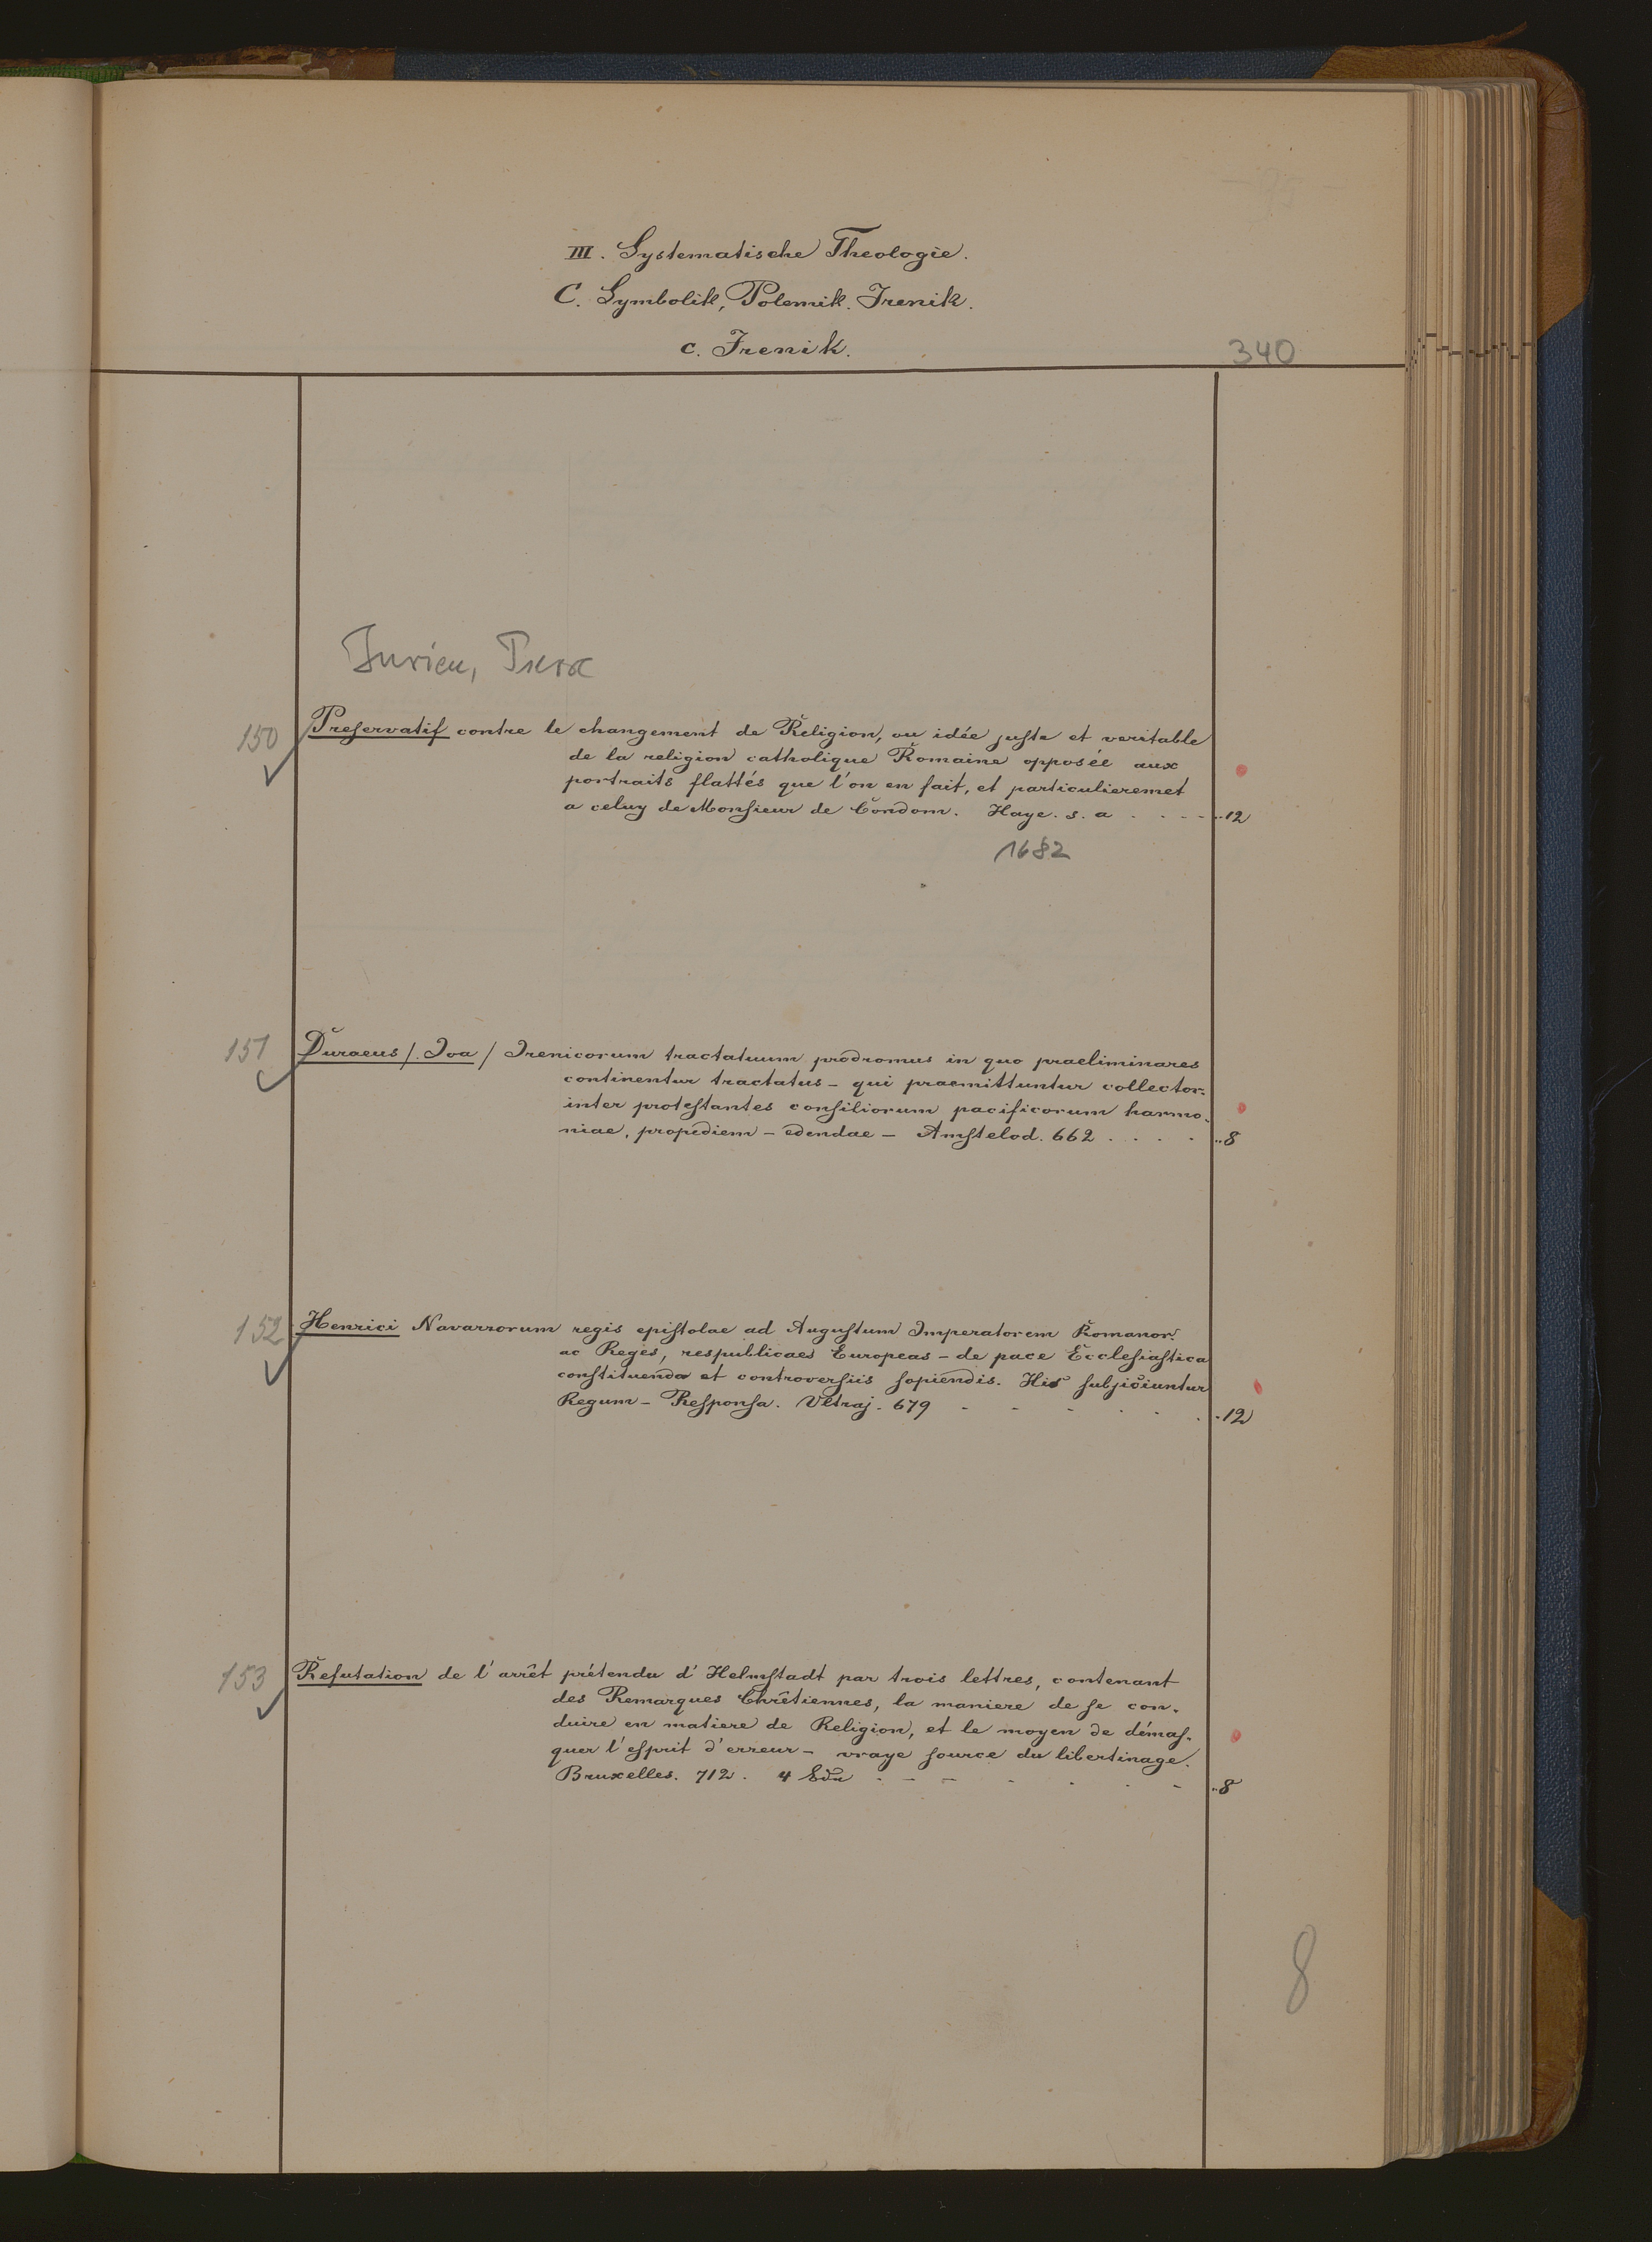 III. Systematische Theologie.
C. Symbolik, Polemik. Irenik.
c. Irenik.
340
Jurieu,
150 Preservatif contre le changement de Religion, ou idée juste et veritable
de la religion catholique Romaine opposée aux
portraits flattés que l'on en fait, et particulieremet
a celuy de Monsieur de Condom. Haye. s. a . . - - ..12
1682
151 Duraeus /. Joa / Irenicorum tractatuum prodromus in quo praeliminares
continentur tractatus - qui praemittuntur collector:
inter protestantes consiliorum pacificorum harmo-
niae, propediem - edendae - Amstelod. 662 . . . . ..8
152 Henrici Navarrorum regis epistolae ad Augustum Imperatorem Romanor:
ac Reges, respublicaes Europeas - de pace Ecclesiastica
constituenda et controversiis sopiendis. His subjiciuntur
Regum - Responsa. Ultraj. 679 - - - - . . .12
153 Refutation de l'arrêt prétendu d'Helmstadt par trois lettres, contenant
des Remarques Chrêtiennes, la maniere de se con-
duire en matiere de Religion, et le moyen de démas-
quer l'esprit d'erreur - vraye source du libertinage.
Bruxelles. 712. 4 Edn - - - - . . - ..8
8